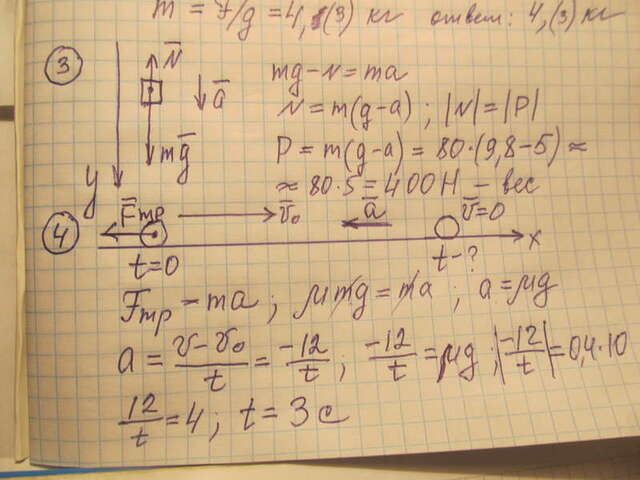 m = F/g = 4,(3) кг ответ: 4,(3) кг
3
N
a
mg
y
mg-N=ma
N=m(g-a) ; |N|=|P|
P = m(g-a) = 80·(9,8-5) ≈
≈ 80·5 = 400Н - вес
4
Fтр
v₀
a
v=0
x
t=0
t-?
Fтр = ma ; μmg=ma ; a=μg
a = (v-v₀)/t = -12/t ; -12/t = μg ; |-12/t| = 0,4·10
12/t = 4 ; t = 3с